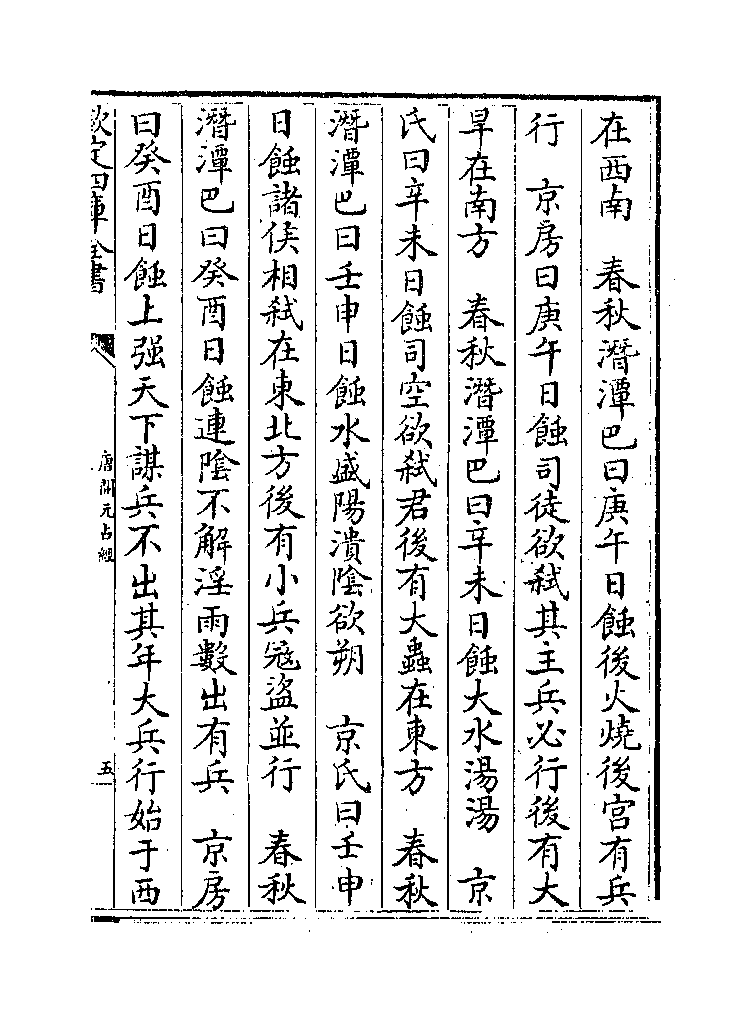 在西南　春秋潛潭巴曰庚午日蝕後火燒後宫有兵
行　京房曰庚午日蝕司徒欲弑其主兵必行後有大
旱在南方　春秋潛潭巴曰辛未日蝕大水湯湯　京
氏曰辛未日蝕司空欲弑君後有大蟲在東方　春秋
潛潭巴曰壬申日蝕水盛陽潰隂欲朔　京氏曰壬申
日蝕諸侯相弑在東北方後有小兵冦盜並行　春秋
潛潭巴曰癸酉日蝕連隂不解淫雨數出有兵　京房
曰癸酉日蝕上强天下謀兵不出其年大兵行始于西
欽定四庫全書
唐開元占經
五